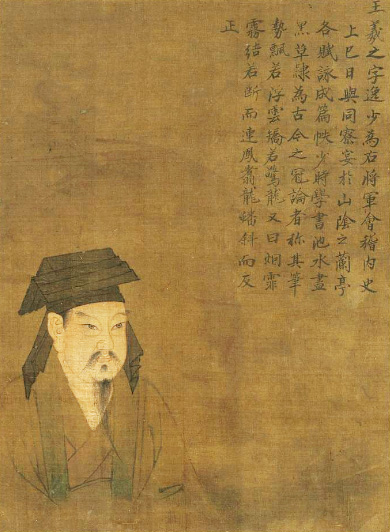 王羲之字逸少為右將軍會稽內史
上巳日與同寮宴於山陰之蘭亭
各賦詠成篇帙少時學書池水盡
黑草隸為古今之冠論者稱其筆
勢飄若浮雲矯若驚龍又曰烟霏
霧結若斷而連鳳翥龍蟠斜而反
正